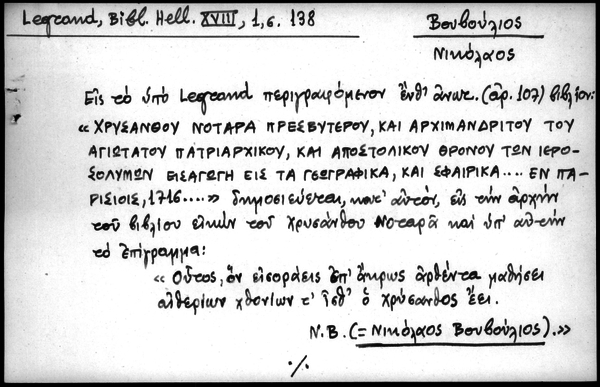 Legrand, Bibl. Hell. XVIII, 1, σ. 138
Βουβούλιος
Νικόλαος
Εἰς τὸ ὑπὸ Legrand περιγραφόμενον ἔνθ' ἀνωτ. (ἀρ. 107) βιβλίον:
« ΧΡΥΣΑΝΘΟΥ ΝΟΤΑΡΑ ΠΡΕΣΒΥΤΕΡΟΥ, ΚΑΙ ΑΡΧΙΜΑΝΔΡΙΤΟΥ ΤΟΥ
ΑΓΙΩΤΑΤΟΥ ΠΑΤΡΙΑΡΧΙΚΟΥ, ΚΑΙ ΑΠΟΣΤΟΛΙΚΟΥ ΘΡΟΝΟΥ ΤΩΝ ΙΕΡΟ-
ΣΟΛΥΜΩΝ ΕΙΣΑΓΩΓΗ ΕΙΣ ΤΑ ΓΕΩΓΡΑΦΙΚΑ, ΚΑΙ ΣΦΑΙΡΙΚΑ.... ΕΝ ΠΑ-
ΡΙΣΙΟΙΣ, 1716....» δημοσιεύεται, κατ' αὐτόν, εἰς τὴν ἀρχὴν
τοῦ βιβλίου εἰκὼν τοῦ Χρυσάνθου Νοταρᾶ καὶ ὑπ' αὐτὴν
τὸ ἐπίγραμμα:
« Οὗτος, ὃν εἰσοράεις ἐπ' ἄκρως ἀρθέντα μαθήσει
αἰθερίων χθονίων τ' ἴσθ' ὁ χρύσανθος ἔει.
N.B. (= Νικόλαος Βουβούλιος).»
./.